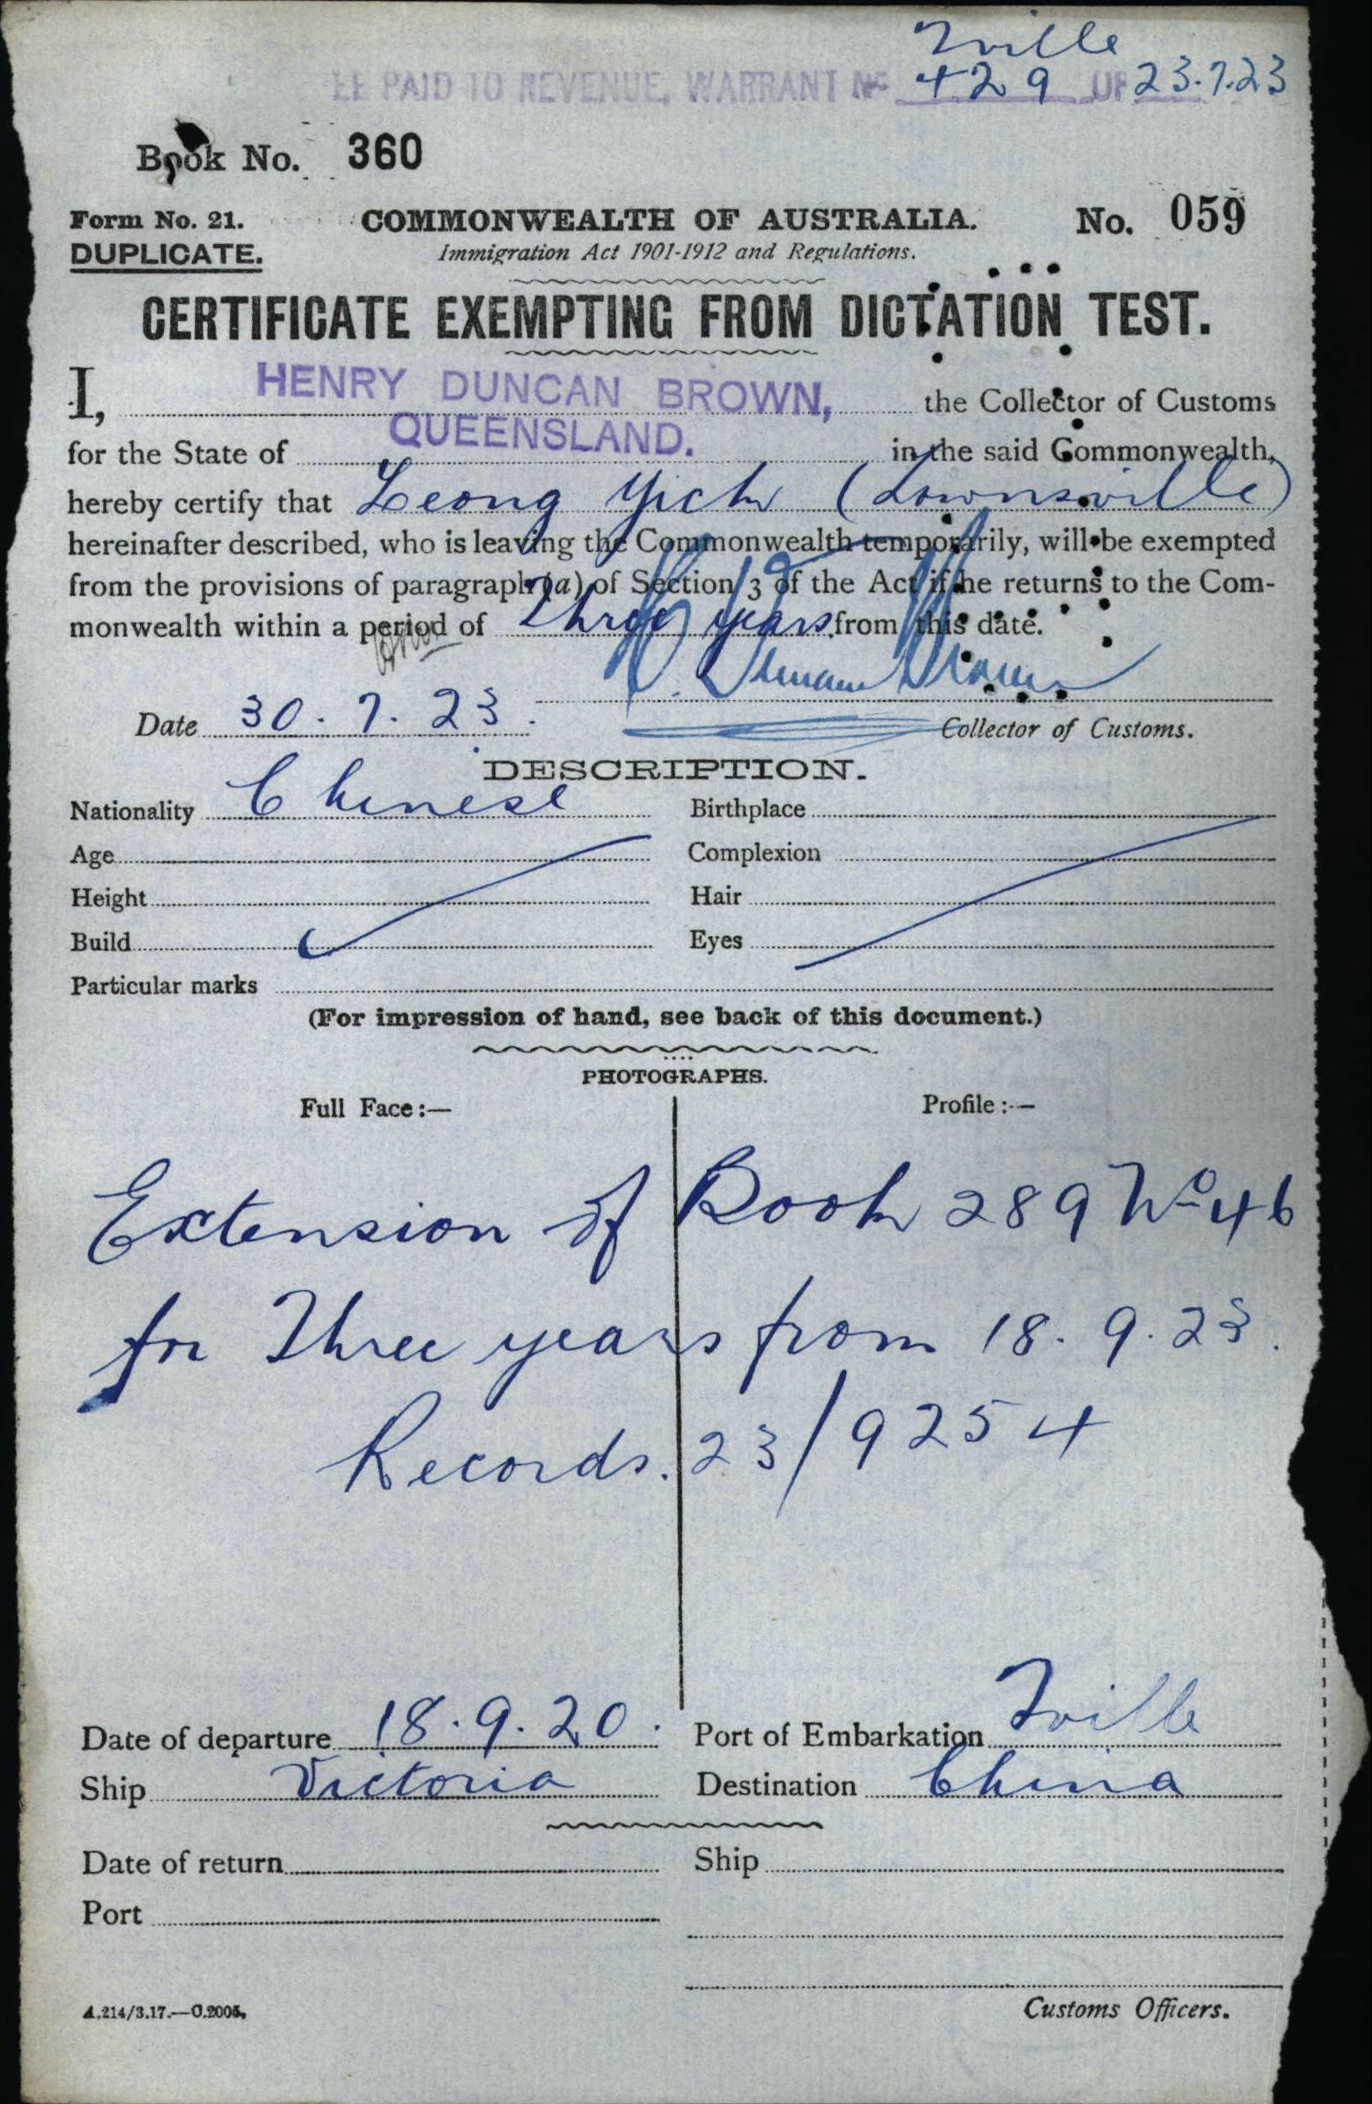 Tville
EE PAID TO REVENUE, WARRANT No 429 OF 23.7.23
Book No. 360
Form No. 21. COMMONWEALTH OF AUSTRALIA. No. 059
DUPLICATE. Immigration Act 1901-1912 and Regulations.
CERTIFICATE EXEMPTING FROM DICTATION TEST.
I, HENRY DUNCAN BROWN, the Collector of Customs
for the State of QUEENSLAND. in the said Commonwealth,
hereby certify that Leong Yick (Townsville)
hereinafter described, who is leaving the Commonwealth temporarily, will be exempted
from the provisions of paragraph (a) of Section 3 of the Act if he returns to the Com-
monwealth within a period of Three years from this date.
H. Duncan Brown
Date 30.7.23. Collector of Customs.
DESCRIPTION.
Nationality Chinese Birthplace
Age Complexion
Height Hair
Build Eyes
Particular marks
(For impression of hand, see back of this document.)
PHOTOGRAPHS.
Full Face:— Profile:—
Extension of Book 289 No 46
for Three years from 18.9.23.
Records. 23/9254
Date of departure 18.9.20. Port of Embarkation Tville
Ship Victoria Destination China
Date of return Ship
Port
A.214/3.17.—C.2005. Customs Officers.